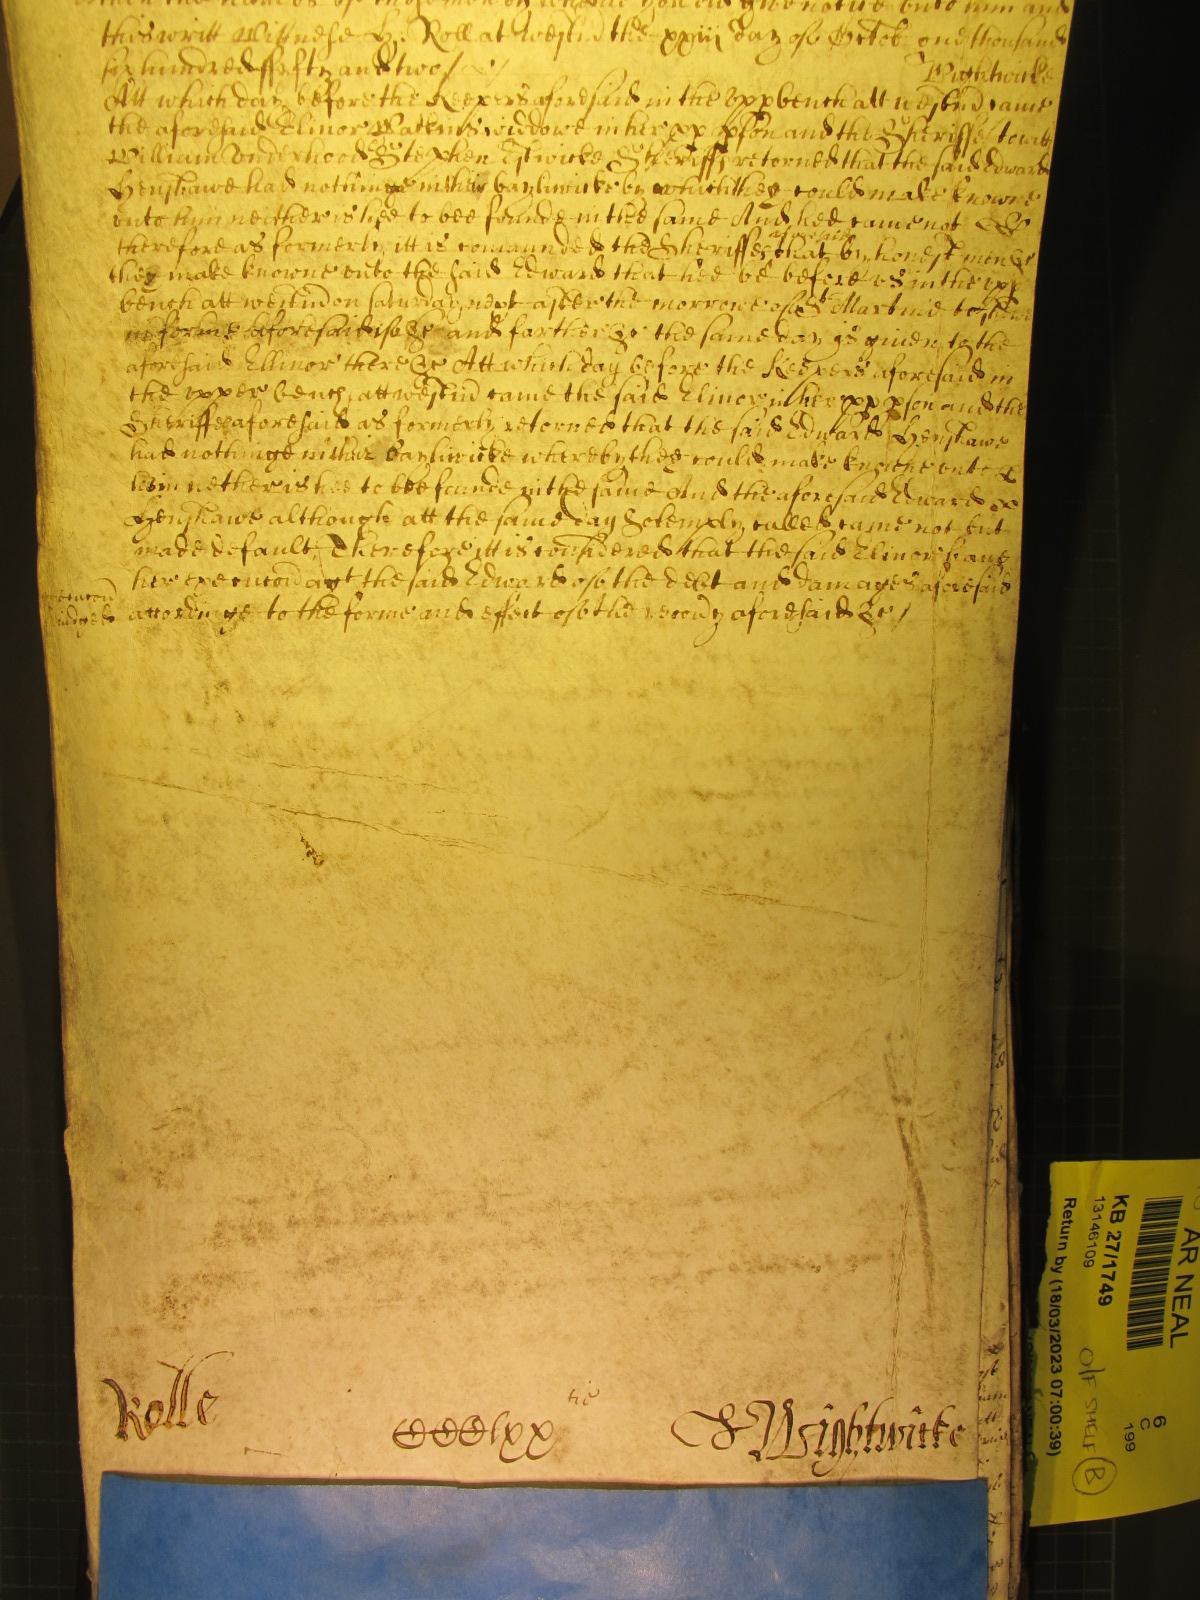 the names of those men by whome you his give notice unto him and
this writt Wittnesse H. Roll att Westmr the xxiii day of Octob one thousand
six hundred ffifty and two /
Wightwicke
Att which day before the Keepers aforesaid in the upp bench att westmr came
the aforesaid Elinor Watkins widdowe in her pp pson and the Sheriffe towitt
William Underhood & Stephen Estwicke Sheriffs returned that the said Edward
Henshawe had nothinge in their bayliwicke by which they could make knowne
unto him neither is hee to bee founde in the same And hee came not &c
therefore as formerly itt is comaunded the Sheriffes aforesaid that by honest men &c
they make knowne unto the said Edward that hee be before us in the upp
bench att westmr on Saturday next after the morrowe of St Martine to shew
in forme aforesaid if &c and farther &c the same day is given to the
aforesaid Ellinor there &c Att which day before the Keepers aforesaid in
the upper bench att westmr came the said Elinor in her pp pson and the
Sheriffe aforesaid as formerly returned that the said Edward Henshawe
had nothinge in their bayliwicke whereby they could make knowne unto
him nether is hee to bee founde in the same And the aforesaid Edward
Henshawe although att the same day Solemply called came not but
made default Therefore itt is considered that the said Elinor have
her execucoñ agt the said Edward of the debt and damages aforesaid
accordinge to the forme and effect of the recovy aforesaid &c /
execucon
iudged
Rolle
CCCClxx tie
& Wightwicke
AR NEAL
KB 27/1749
13146109
Return by (18/03/2023 07:00:39)
6
C
199
O/F SHELF B